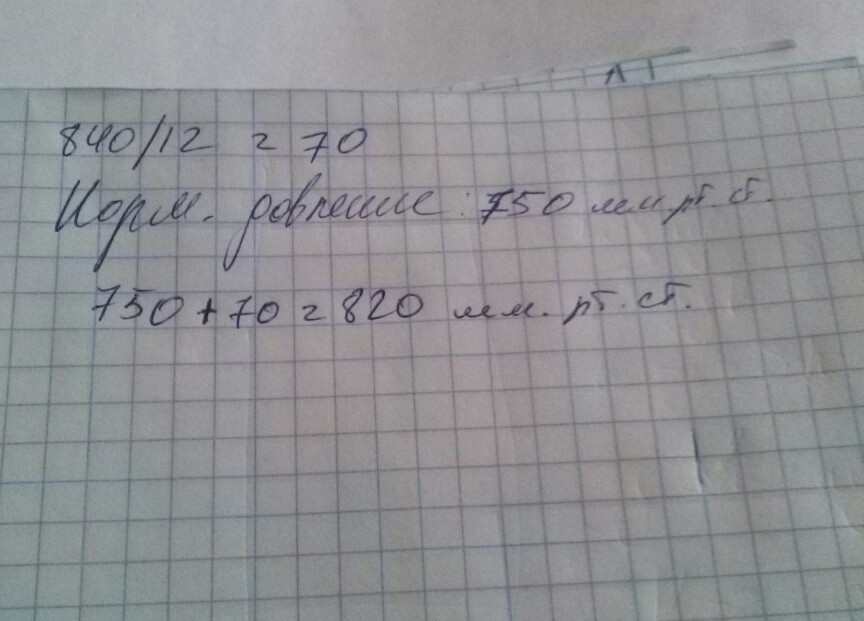 840/12 = 70
Норм. давление: 750 мм рт. ст.
750 + 70 = 820 мм. рт. ст.